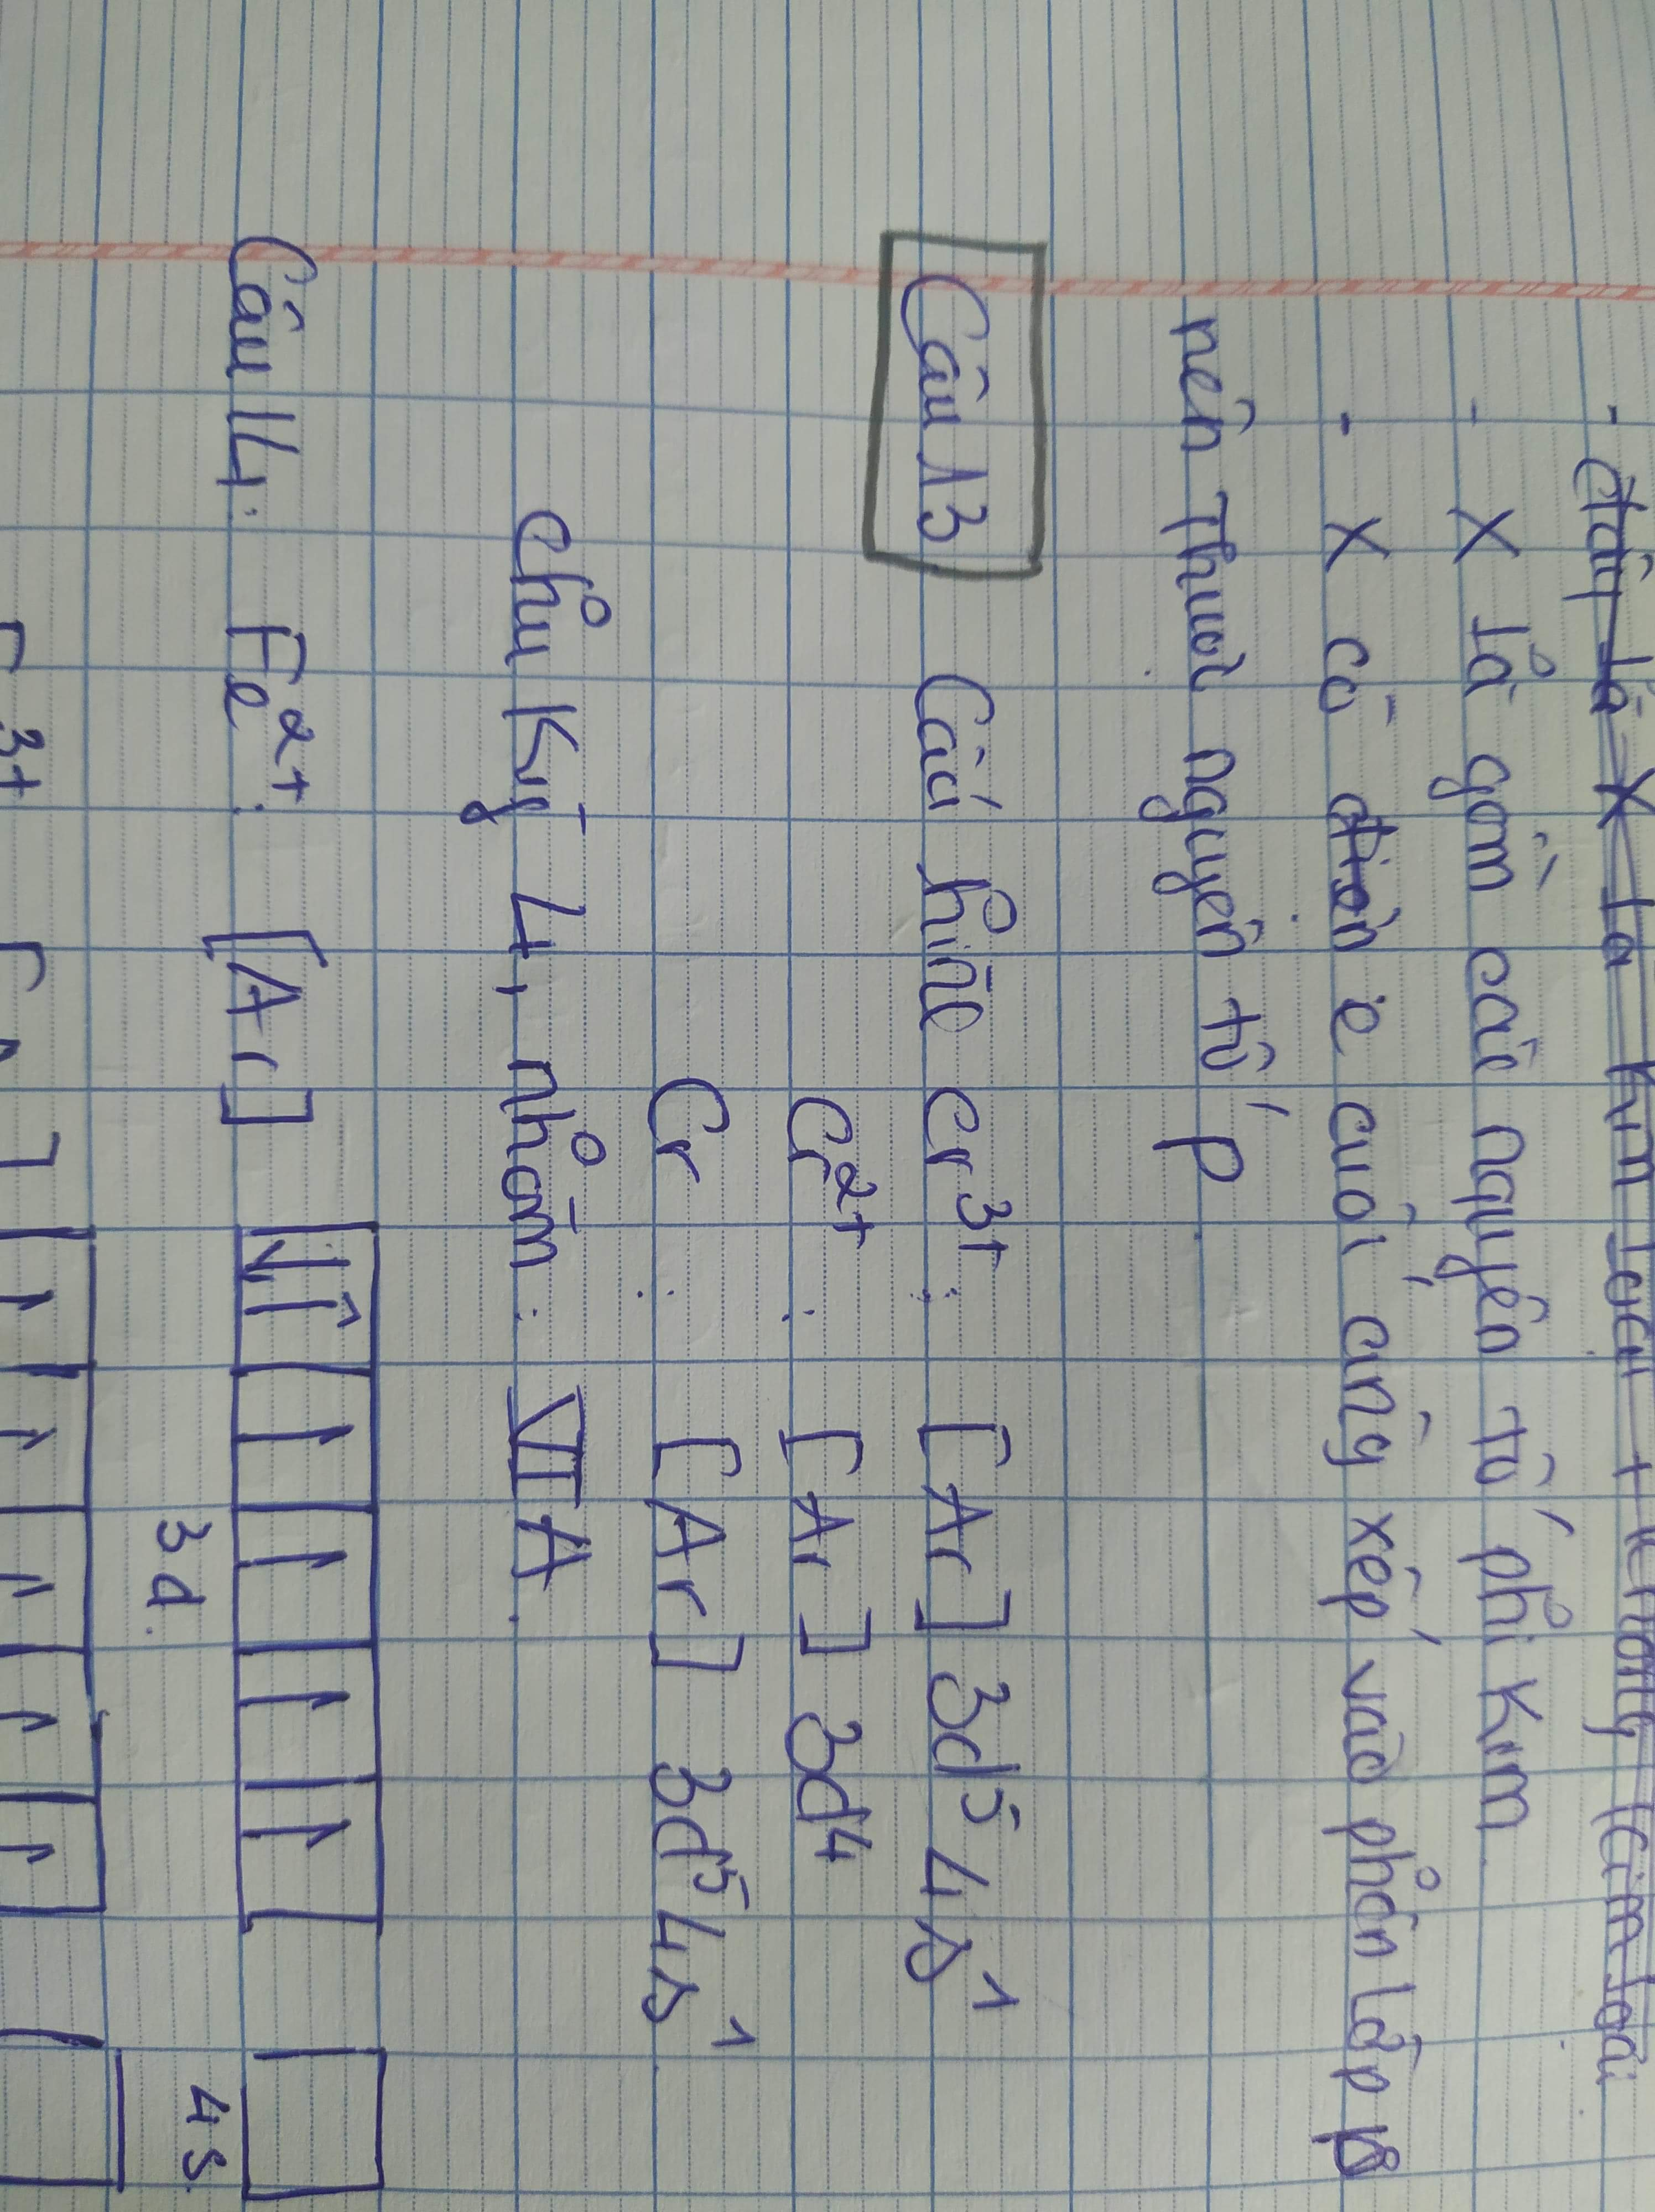 - X là gồm các nguyên tố phi kim
- X có e cuối cùng xếp vào phân lớp p
nên thuộc nguyên tố p
Câu 13 Cấu hình Cr³⁺: [Ar] 3d⁵ 4s¹
Cr²⁺: [Ar] 3d⁴
Cr: [Ar] 3d⁵ 4s¹
Chu kỳ 4, nhóm: VIA.
Câu 14: Fe²⁺: [Ar] ↓↑ ↑ ↑ ↑ ↑
3d 4s
3+ ↑ ↑ ↑ ↑ ↑